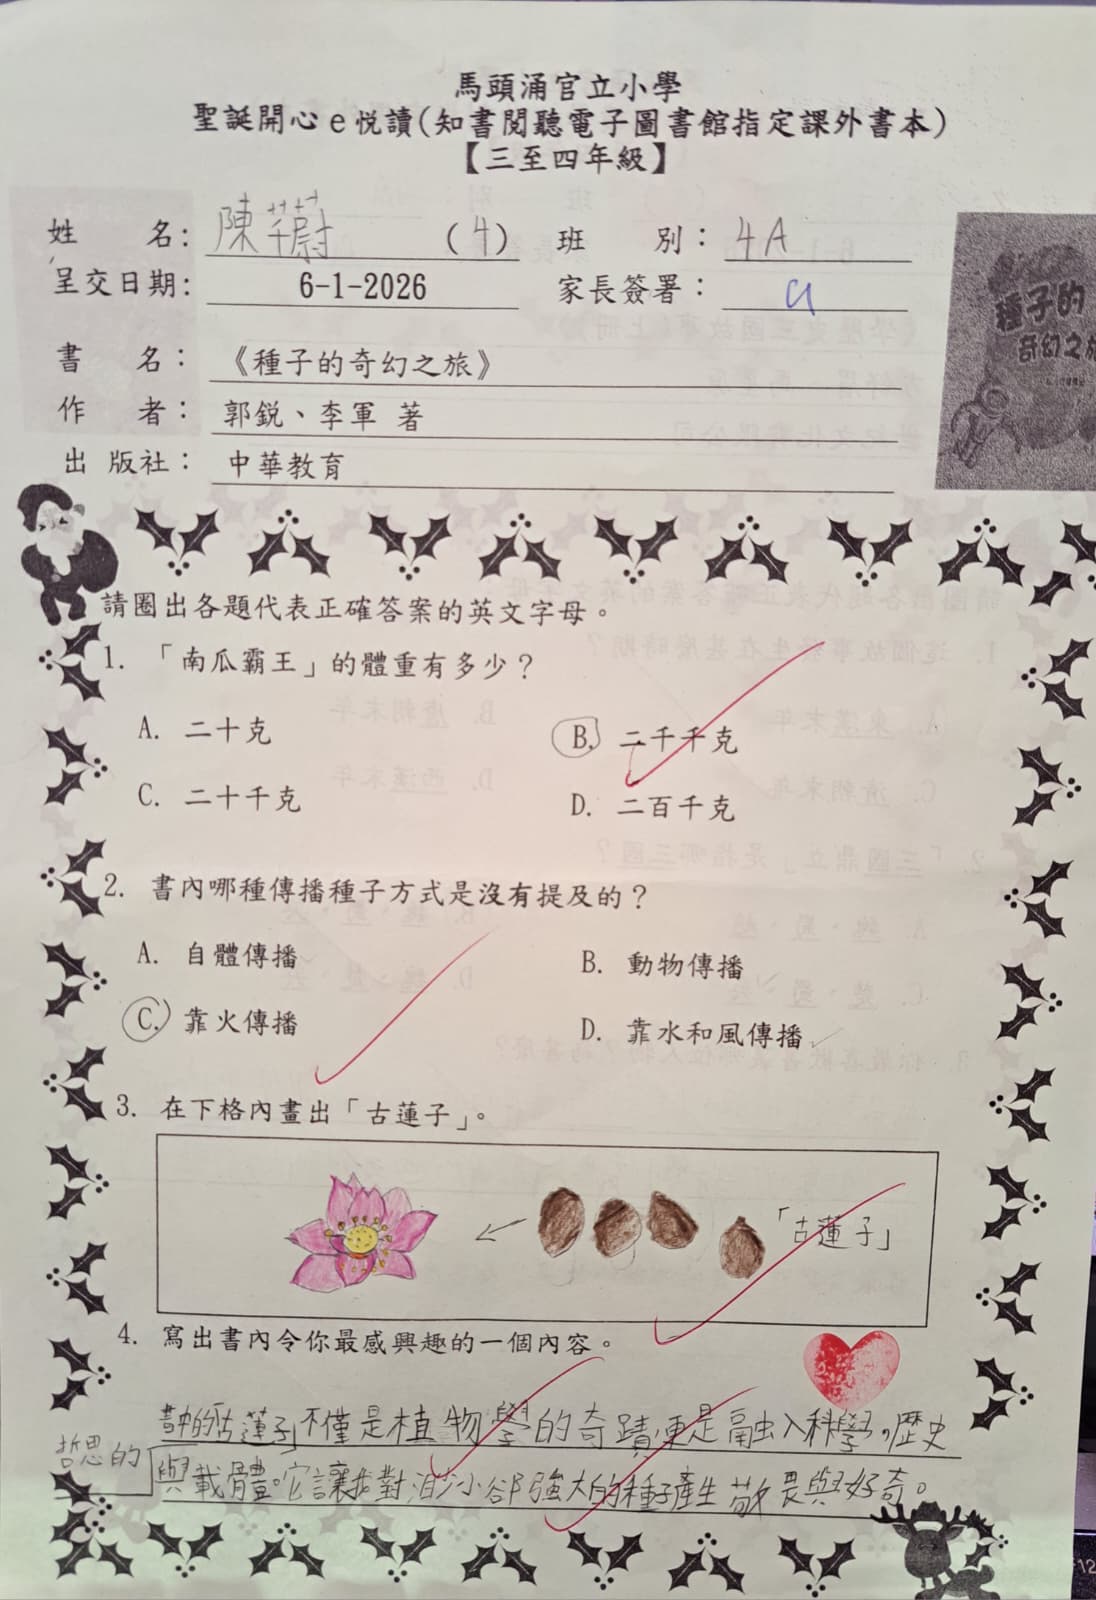 馬頭涌官立小學
聖誕開心e悅讀(知書閱聽電子圖書館指定課外書本)
【三至四年級】
姓 名: 陳芊蔚 (4) 班 別: 4A
呈交日期: 6-1-2026 家長簽署:
書 名: 《種子的奇幻之旅》
作 者: 郭銳、李軍 著
出 版社: 中華教育
種子的
奇幻之旅
請圈出各題代表正確答案的英文字母。
1. 「南瓜霸王」的體重有多少?
A. 二十克 B. 二千千克
C. 二十千克 D. 二百千克
2. 書內哪種傳播種子方式是沒有提及的?
A. 自體傳播 B. 動物傳播
C. 靠火傳播 D. 靠水和風傳播
3. 在下格內畫出「古蓮子」。
「古蓮子」
4. 寫出書內令你最感興趣的一個內容。
書中的「古蓮子」不僅是植物學的奇蹟,更是融入科學,歷史
哲思的
與載體。它讓我對渺小卻強大的種子產生敬畏與好奇。